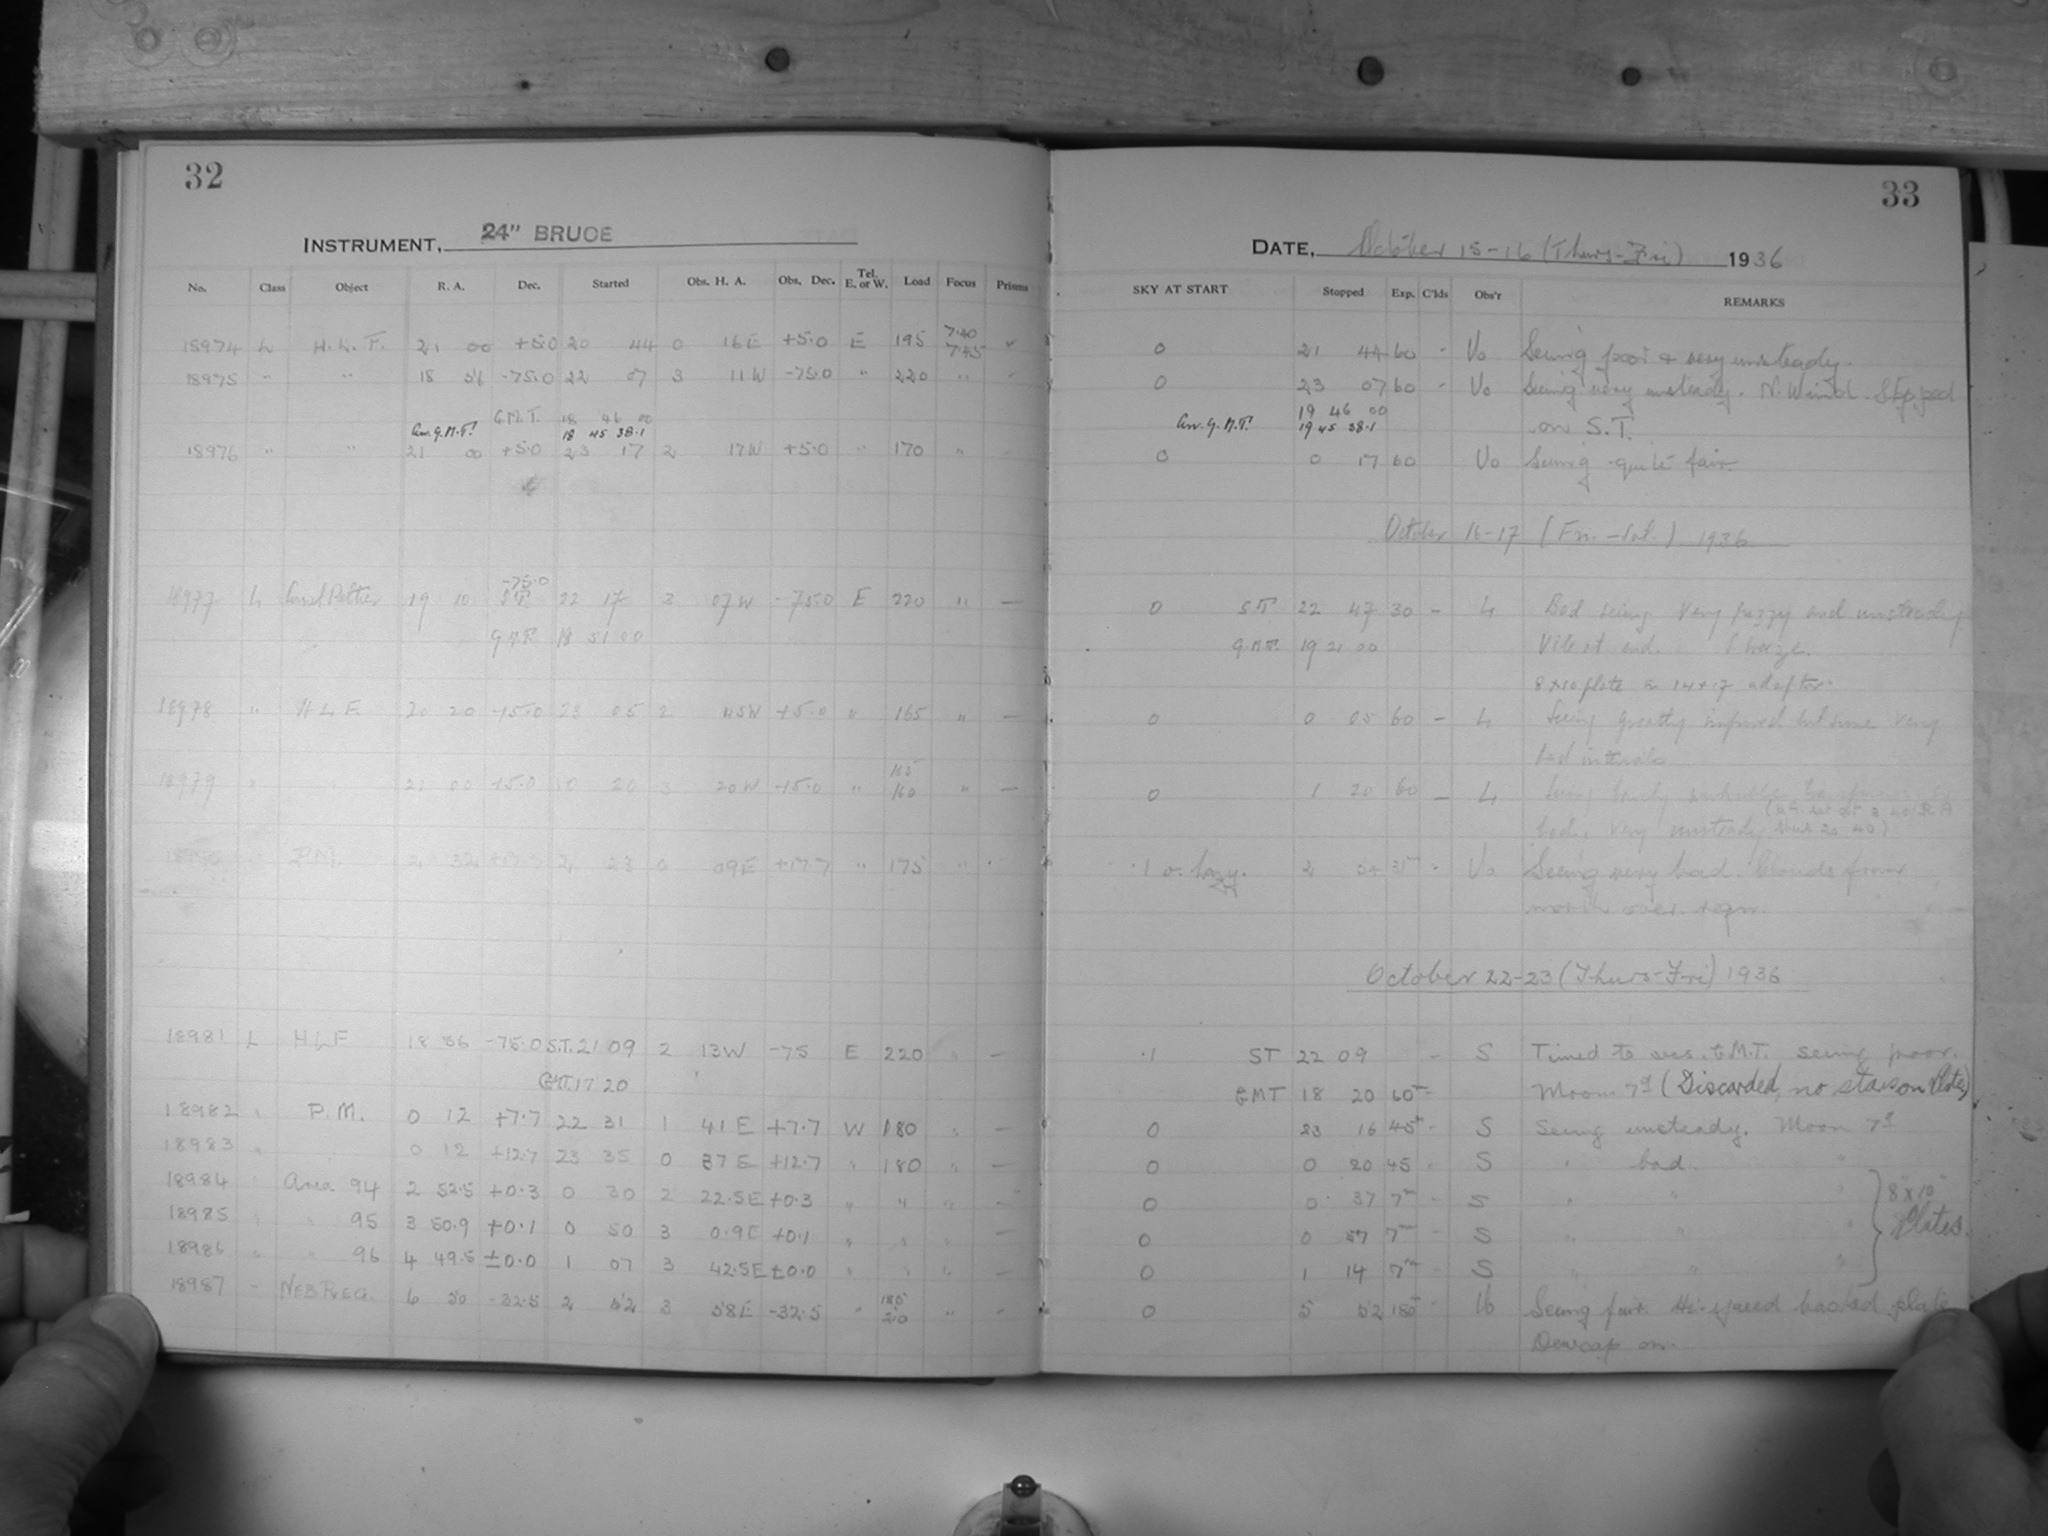 32
INSTRUMENT, 24" BRUCE
No. Class Object R. A. Dec. Started Obs. H. A. Obs. Dec. Tel. E. or W. Load Focus Prisms
7.40
18974 L H.L.T. 21 00 +5.0 20 44 0 16E +5.0 E 195 7.45
18975 " " 18 56 -75.0 22 07 3 11W -75.0 " 220 "
G.M.T. 18 46 00
Corr. G.M.T. 18 45 38.1
18976 " " 21 00 +5.0 23 17 2 17W +5.0 " 170 "
-75.0
18977 L 19 10 S.T. 22 17 3 07W -75.0 E 220 " —
G.M.T. 18 51 00
18978 " H L E 20 20 +5.0 23 05 2 45W +5.0 " 165 " —
165
18979 " 21 00 +5.0 0 20 3 20W +5.0 " 160 " —
18980 P.M. 2 32 +17.7 2 23 0 09E +17.7 " 175 "
18981 L HLF 18 56 -75.0 S.T. 21 09 2 13W -75 E 220 " —
GMT. 17 20
18982 " P.M. 0 12 +7.7 22 31 1 41E +7.7 W 180 " —
18983 " 0 12 +12.7 23 35 0 37E +12.7 " 180 " —
18984 " Area 94 2 52.5 +0.3 0 30 2 22.5E +0.3 " " " —
18985 " " 95 3 50.9 +0.1 0 50 3 0.9E +0.1 " " " —
18986 " " 96 4 49.5 ±0.0 1 07 3 42.5E ±0.0 " " " —
18987 - NEB REG. 6 50 -32.5 2 52 3 58E -32.5 " 185 " —
210
33
DATE, October 15-16 (Thurs-Fri) 1936
SKY AT START Stopped Exp. C'lds Obs'r REMARKS
0 21 44 60 - Vo Seeing poor & very unsteady.
0 23 07 60 - Vo Seeing very unsteady. N. Wind. Stopped
19 46 00
Corr. G.M.T. 19 45 38.1 on S.T.
0 0 17 60 Vo Seeing quite fair.
October 16-17 (Fri.-Sat.) 1936
0 S.T. 22 47 30 - L Bad seeing very fuzzy and unsteady
G.M.T. 19 21 00 Vile at end. Breeze.
8x10 plate in 14x17 adapter.
0 0 05 60 - L Seeing greatly improved but some very
bad intervals
0 1 20 60 - L Seeing
bad, very unsteady
.1 v. hazy. 2 54 31m - Vo Seeing very bad. Clouds from
north over regn.
October 22-23 (Thurs-Fri) 1936
.1 ST 22 09 - S Timed to sec. G.M.T. seeing poor.
GMT 18 20 60m - Moon 7d (Discarded, no stars on plate)
0 23 16 45m - S Seeing unsteady. Moon 7d
0 0 20 45 - S " bad. "
0 0 37 7m - S " " " 8"x10"
0 0 57 7m - S " " " Plates.
0 1 14 7m - S " " "
0 5 52 180m - Vo Seeing fair. Hi-speed backed plate
Dewcap on.